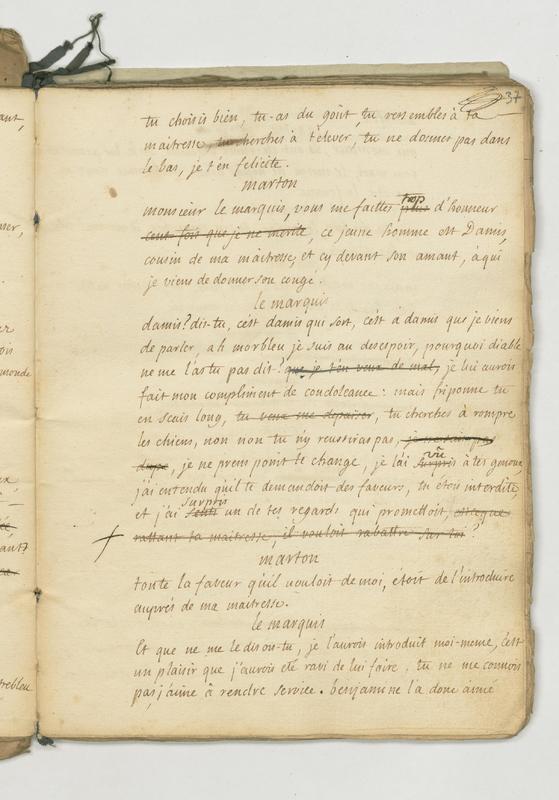 37
tu choisis bien, tu as du goût, tu ressembles à ta
maitresse, tu cherches à t'elever, tu ne donnes pas dans
le bas, je t'en felicite.
marton
monsieur le marquis, vous me faittes plus trop d'honneur
cent fois que je ne merite, ce jeune homme est Damis,
cousin de ma maitresse, et cy devant son amant, à qui
je viens de donner son congé.
le marquis
damis? dis-tu, c'est damis qui sort, c'est à damis que je viens
de parler, ah morbleu je suis au desespoir, pourquoi diable
ne me l'as tu pas dit? que je t'en veux de mal, je lui aurois
fait mon compliment de condoleance: mais friponne tu
en scais long, tu veux me depaiser, tu cherches à rompre
les chiens, non non tu n'y reussiras pas, je ne suis pas
dupe, je ne prens point le change, je l'ai surpris vû à tes genoux
j'ai entendu qu'il te demandoit des faveurs, tu étois interdite,
et j'ai senti surpris un de tes regards qui promettoit,
rattant ta maitresse, il vouloit rabattre sur toi?
marton
toute la faveur qu'il vouloit de moi, étoit de l'introduire
auprés de ma maitresse.
le marquis
Et que ne me le disois-tu, je l'aurois introduit moi-meme, c'est
un plaisir que j'aurois eté ravi de lui faire. tu ne me connois
pas, j'aime à rendre service. benjamine l'a donc aimé
aut,
ser,
er
ois
monde
ant?
trebleu